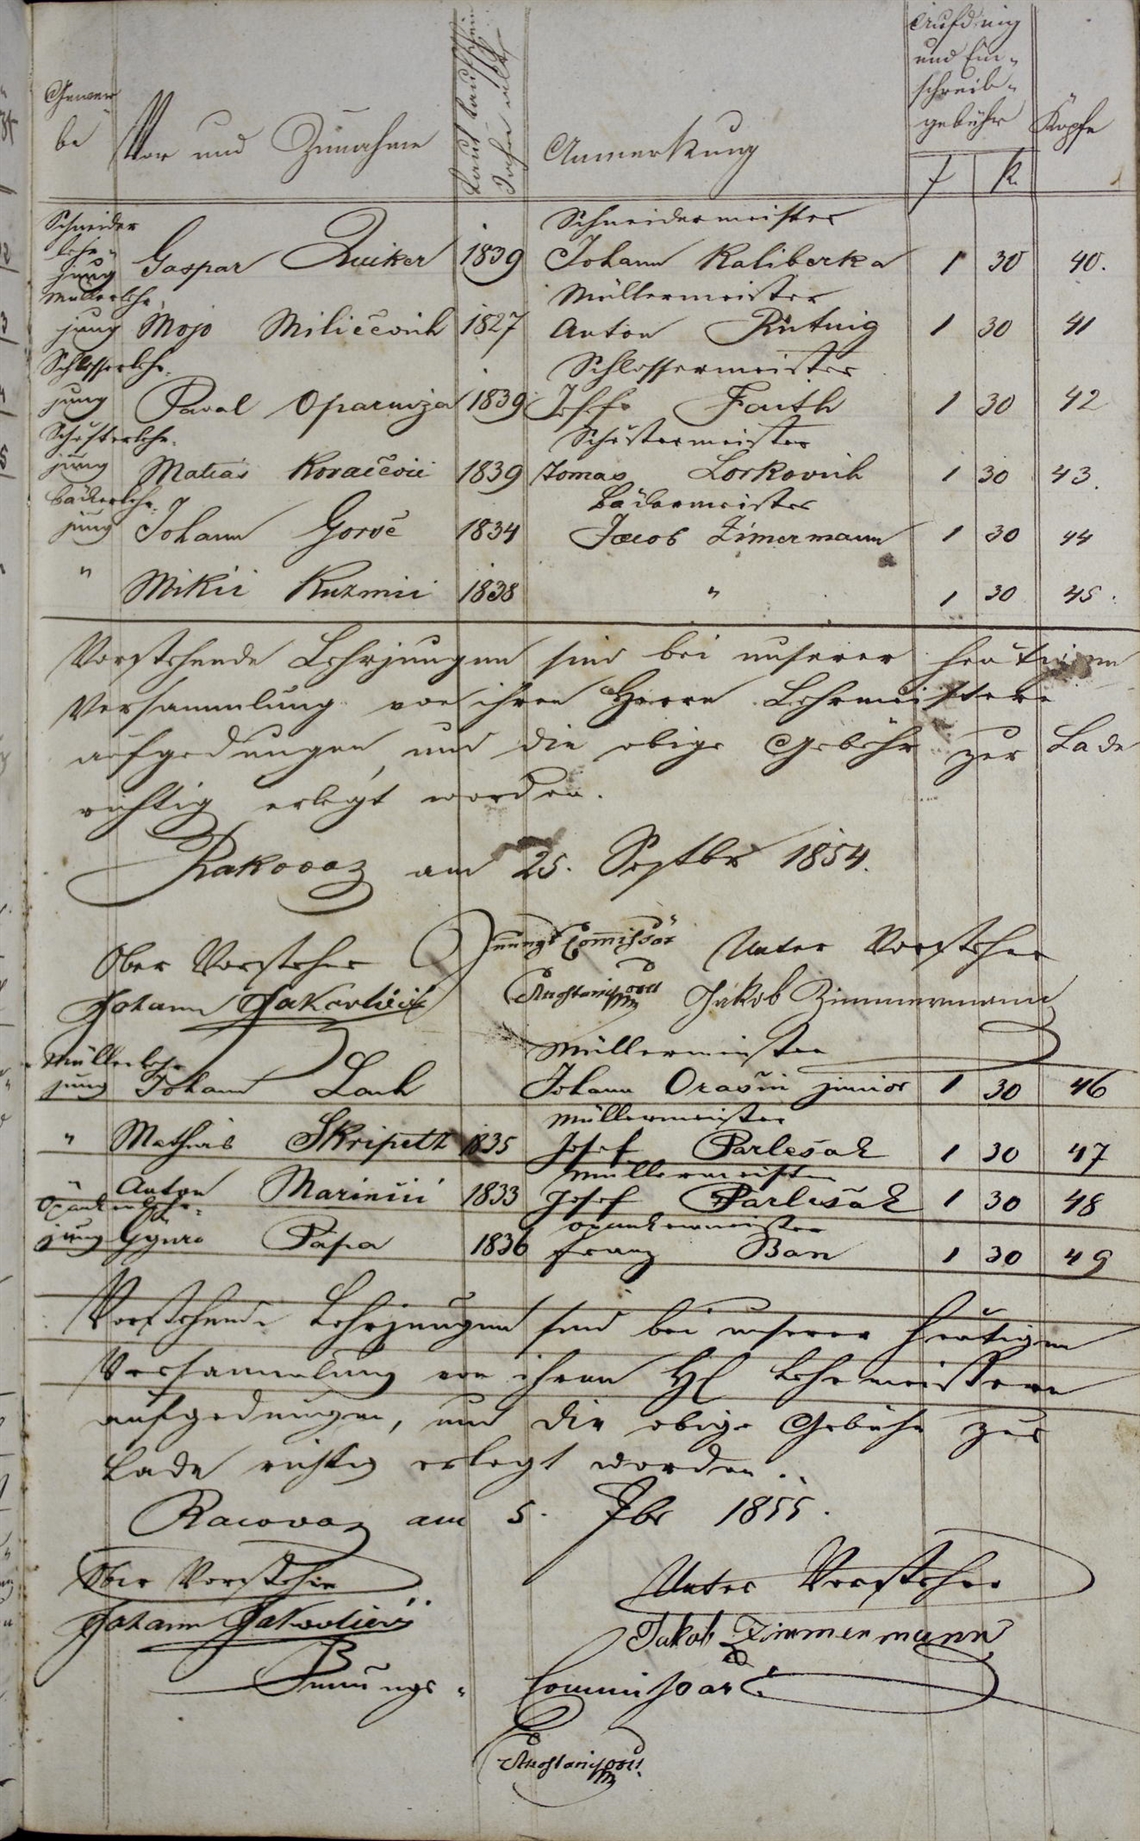 Gewer-
be
Vor und Zunahme
Laut Taufschein
Jahre alt
Anmerkung
Aufding
und Ein-
schreib-
gebühr
f
k
Köpfe
Schneider
lehr-
jung
Gaspar Zuiker 1839
Schneidermeister
Johann Kaliberka 1 30 40.
Müllerlehr-
jung Mojo Miličevich 1827
Müllermeister
Anton 1 30 41
Schlosserlehr-
jung Paval Oparniza 1839
Schlossermeister
Faith 1 30 42
Schusterlehr-
jung Matias Kovačević 1839
Schustermeister
Tomas Lorkovich 1 30 43.
Bäckerlehr-
jung Johann Gorše 1834
Bäckermeister
Jacob Zimermann 1 30 44
" Mikić Kuzmić 1838 " 1 30 45.
Vorstehende Lehrjungen sind bei unserer heutigen
Versammlung von ihren Herrn Lehrmeistern
aufgedungen, und die obige Gebühr zur Lade
richtig erlegt worden.
Rakovaz am 25. Septbr 1854.
Ober Vorsteher
Innungs Commissär
Unter Vorsteher
Johann Jakovlić
Jakob Zimmermann
Müllerlehr-
jung Johann Lach
Müllermeister
Johann Oračin junior 1 30 46
" Mathias Skripeth 1835
Müllermeister
Josef Parlešak 1 30 47
" Anton Marinčić 1833
Müllermeister
Josef Parlešak 1 30 48
Opankerlehr-
jung Gyuro Papa 1836
Opankermeister
Franz Ban 1 30 49
Vorstehende Lehrjungen sind bei unserer heutigen
Versammlung von ihren H Lehrmeistern
aufgedungen, und die obige Gebühr zur
Lade richtig erlegt worden.
Racovaz am 5. 7br 1855.
Ober Vorsteher
Unter Vorsteher
Jakob Zimmermann
Innungs-Commissär